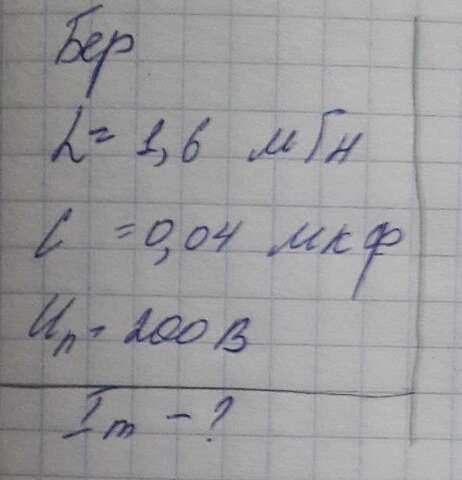 Бер
L = 1,6 мГн
C = 0,04 мкф
Uп = 200 В
Im - ?